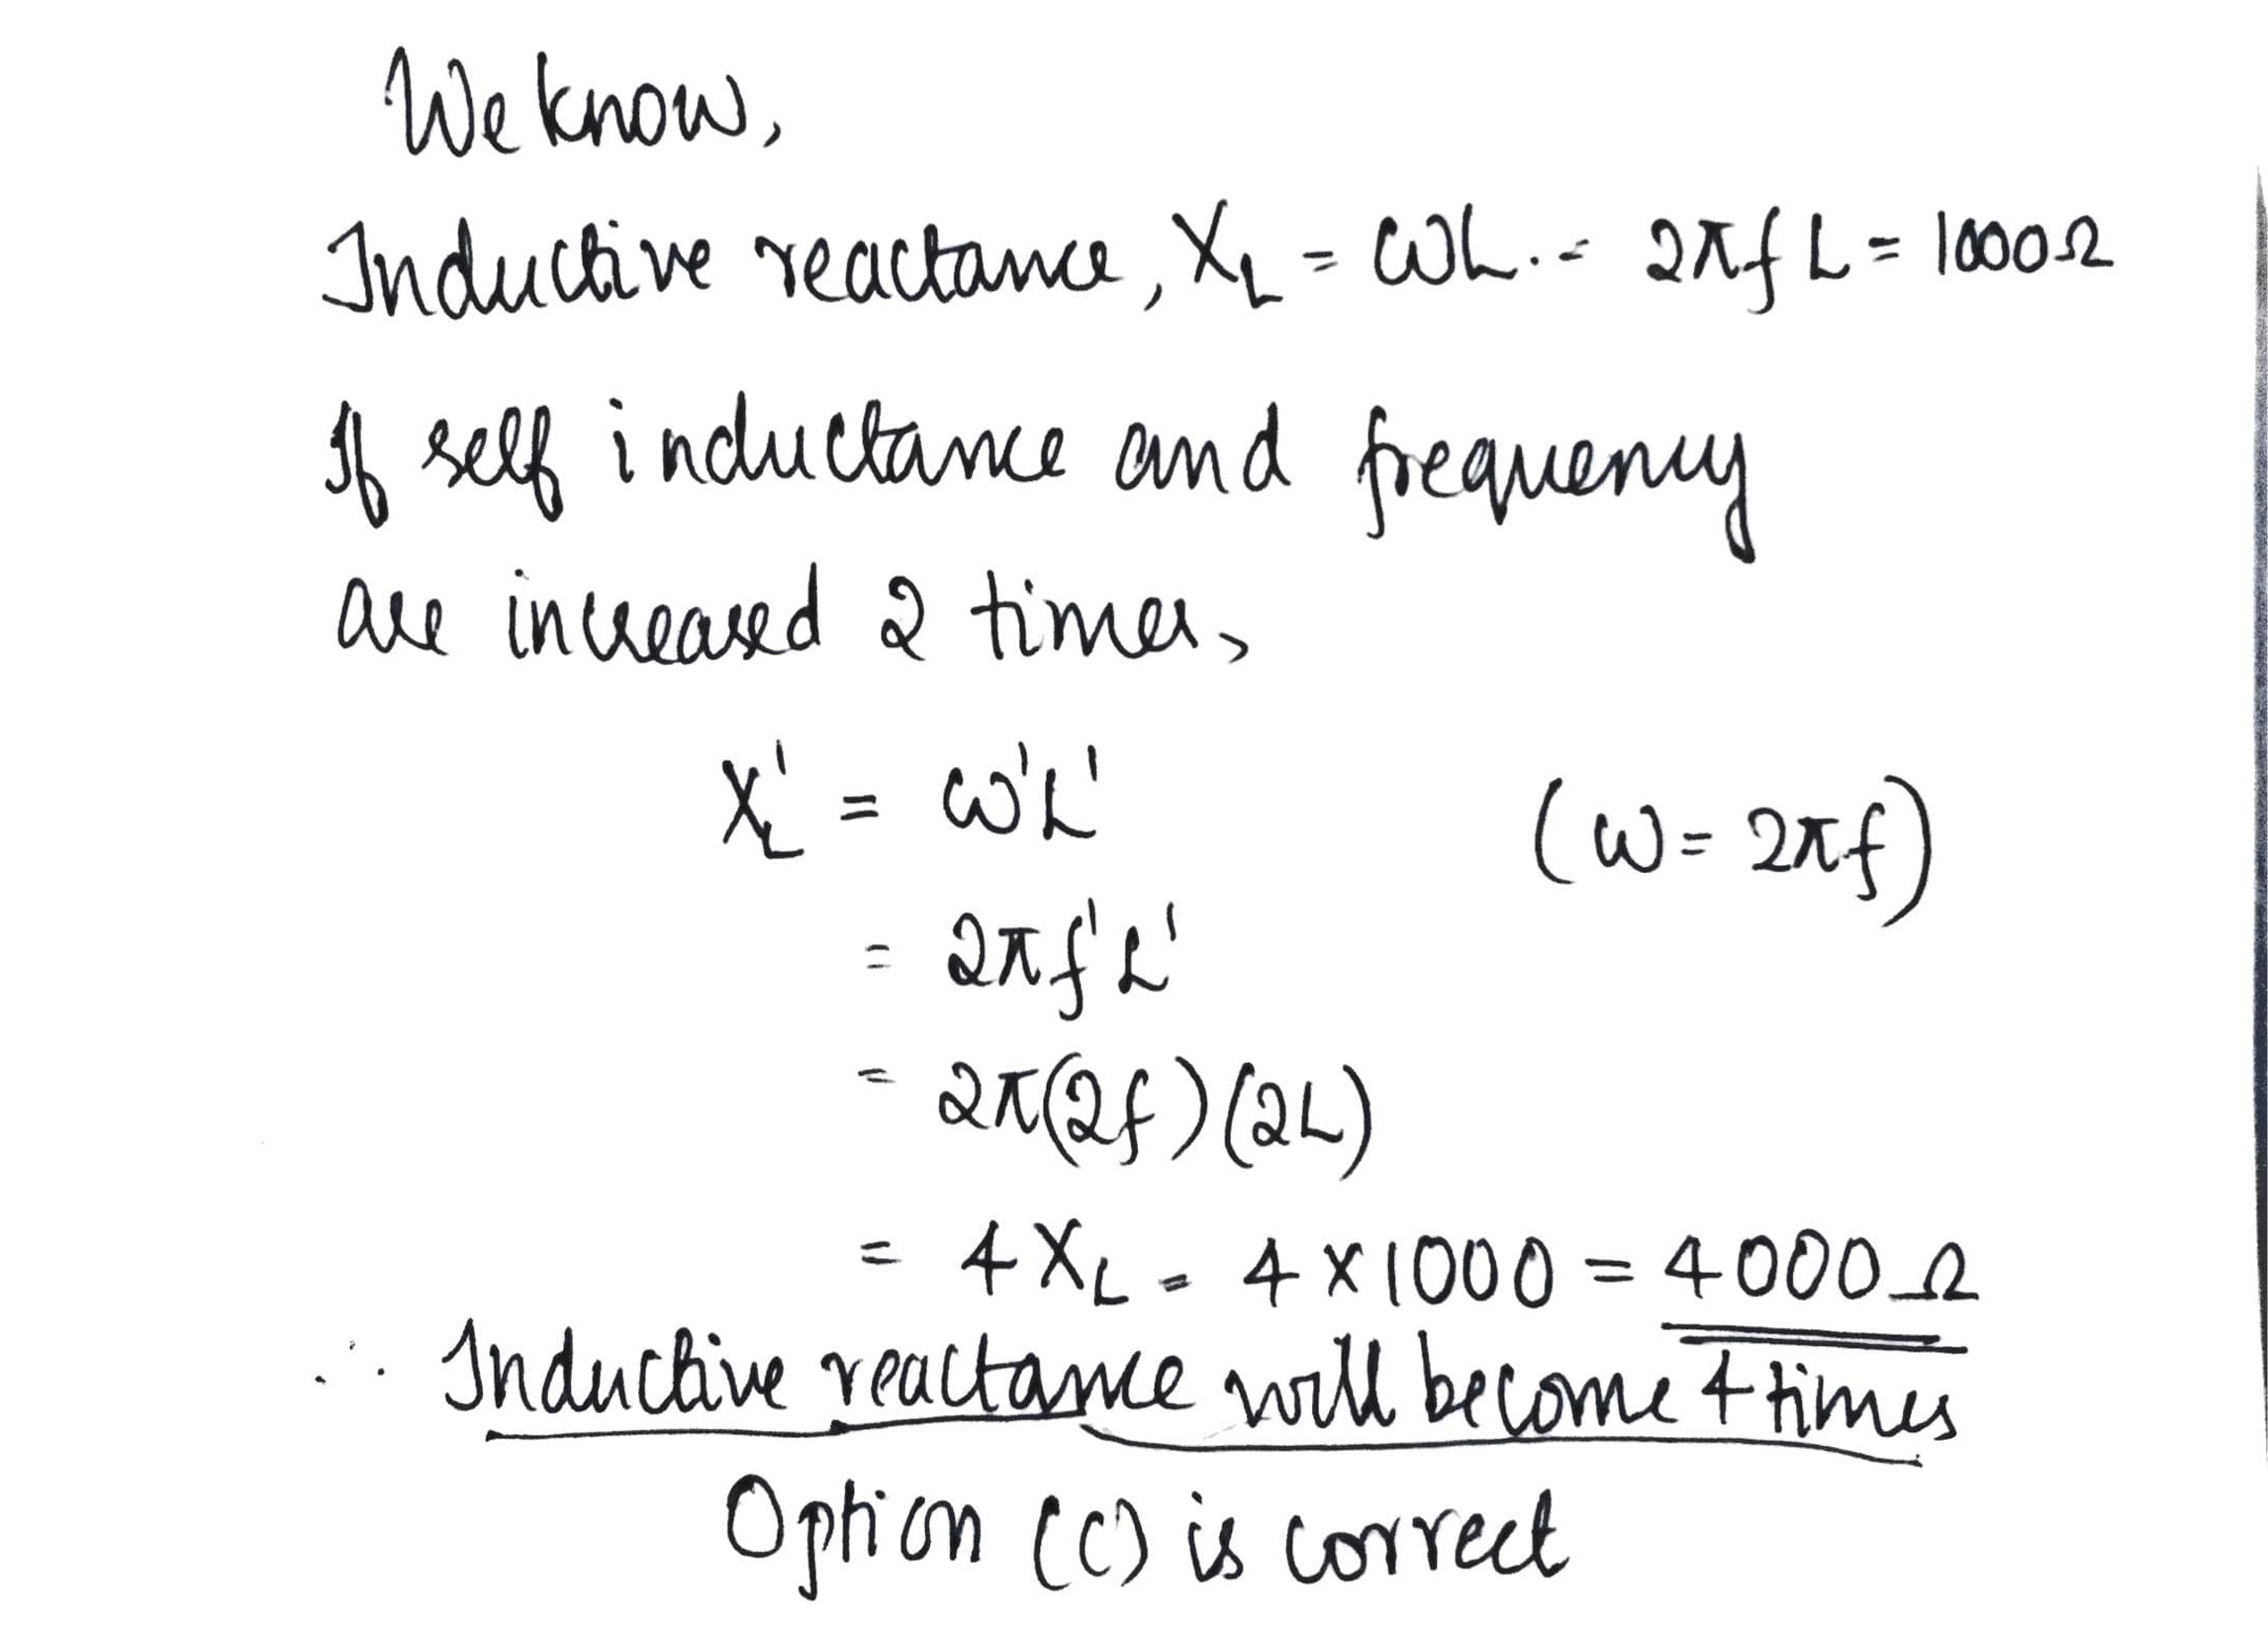 We know,
Inductive reactance, X_L = ωL. = 2πfL = 1000Ω
If self inductance and frequency
are increased 2 times,
X_L' = ω'L' (ω = 2πf)
= 2πf'L'
= 2π(2f)(2L)
= 4X_L = 4×1000 = 4000Ω
∴ Inductive reactance will become 4 times
Option (c) is correct